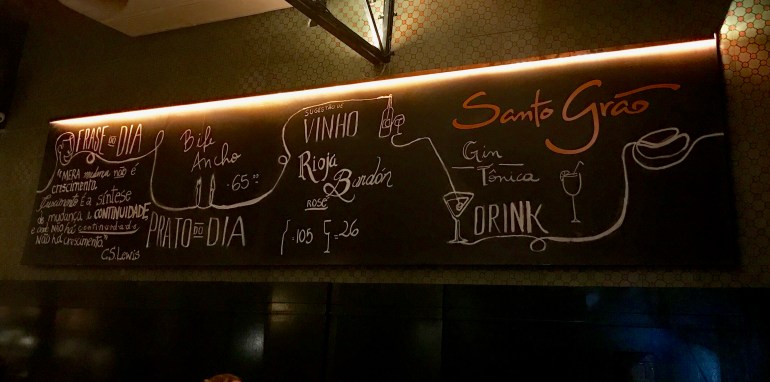 FRASE DO DIA
"MERA mudança não é
crescimento.
Crescimento É a síntese
de mudança e CONTINUIDADE,
e onde NÃO há continuidade
NÃO há crescimento."
C.S. Lewis
Bife
Ancho
65
PRATO DO DIA
SUGESTÃO DE
VINHO
Rioja
Bardón
ROSÉ
105
26
Santo Grão
Gin
Tônica
DRINK